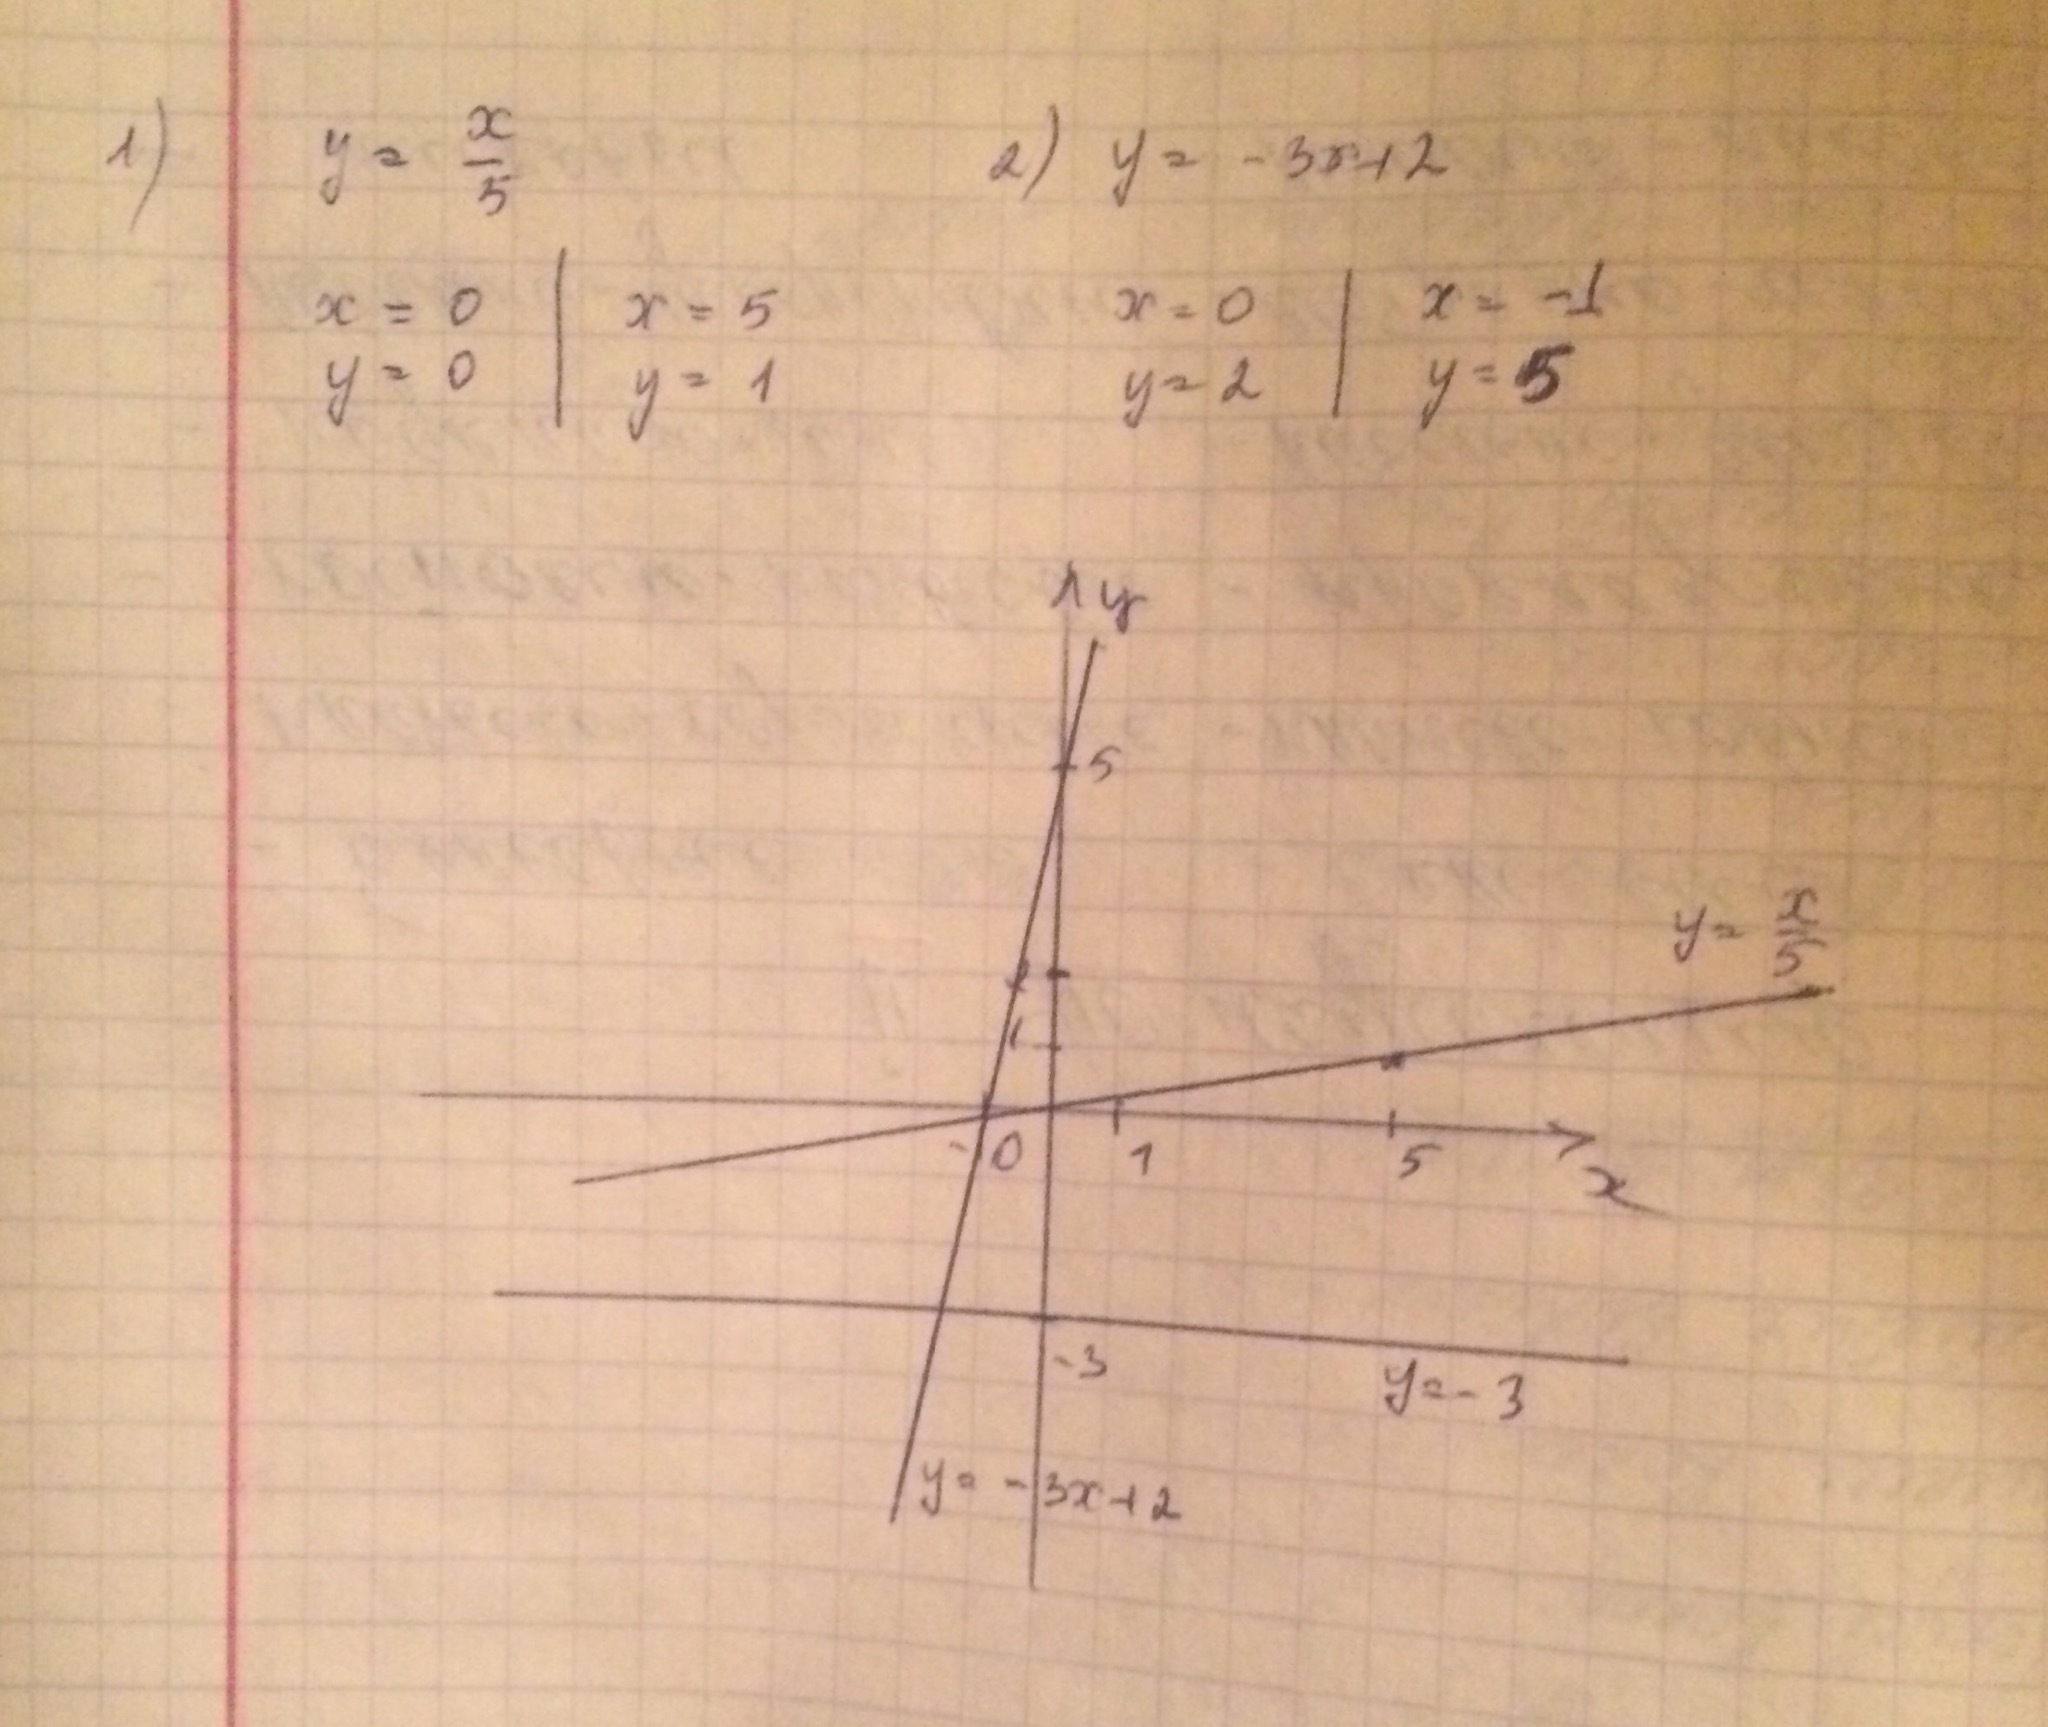 1) y = x/5 2) y = -3x+2
x = 0 | x = 5 x = 0 | x = -1
y = 0 | y = 1 y = 2 | y = 5
y
5
y = x/5
2
1
-1 0 1 5
x
-3
y = -3
y = -3x+2